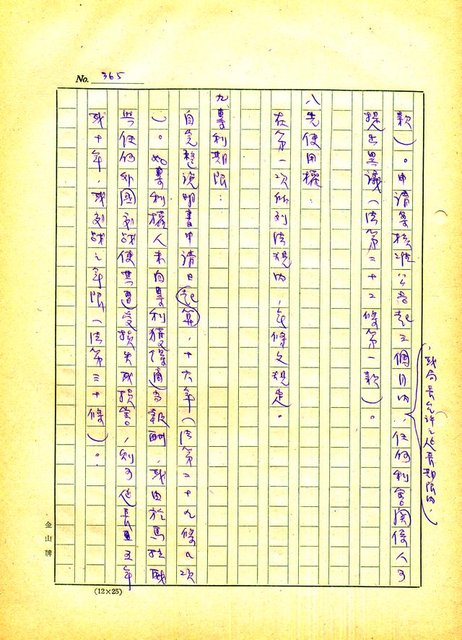 No. 365
款)。申請案核准公告起三個月內,任何利害關係人可
或局長允許之延長期限內,
提出異議(法第二十二條第一款)。
八、先使用權:
在第一次所列法規內,無條文規定。
九、專利期限:
自完整說明書申請日起算,十六年(法第二十九條a次
)。如專利權人未由專利獲得適當報酬,或由於馬拉敵
與任何外國交戰使其遭受損失或損害,則可延長至五年
或十年 或交戰之年限(法第三十條)。
金山牌
(12×25)